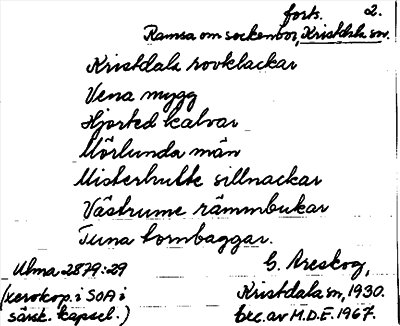 forts. 2.
Ramsa om sockenbor, Kristdala sn.
Kristdala rovklackar
Vena mygg
Hjorted kalvar
Mörlunda män
Misterhulte sillnackar
Västrume rämmbukar
Tuna tornbaggar.
Ulma 2879:29 G. Areskog,
(xerokop. i SOA i Kristdala sn, 1930.
särsk. kapsel.) Exc. av M.D.E. 1967.